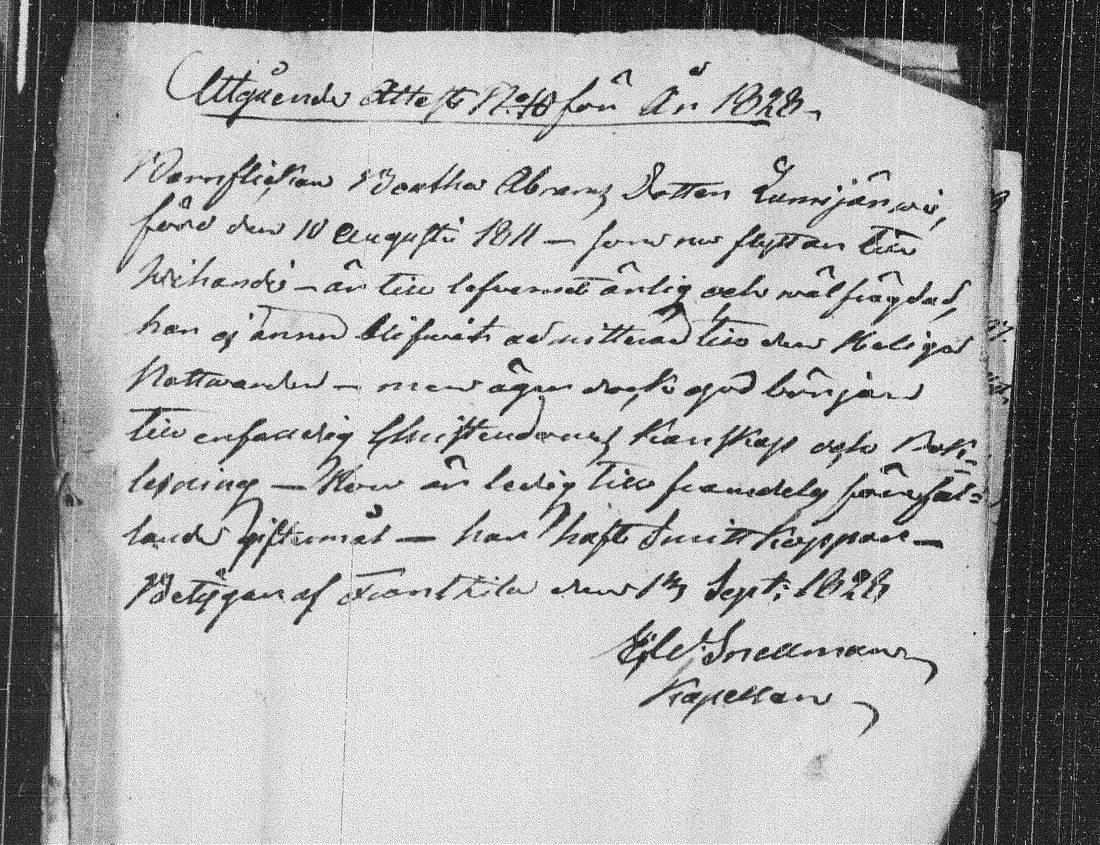 Utgående Attest No 10 för År 1828.
Barnflickan Beatha Abrams Dotter Lumijärwi,
född den 10 Augusti 1811 – som nu flyttar till
Wihandi – är till lefvernet ärlig och wälfrägdad,
har ej ännu blifwit admitterad till den Heliga
Nattwarden – men äger dock god början
till enfaldig Christendoms Kunskap och Bek-
lesning – Hon är ledig till framdeles förefal-
lande giftermål – har haft Smittkoppor –
Betygar af Frantsila den 13 Sept: 1828
Snellman
Kapellan